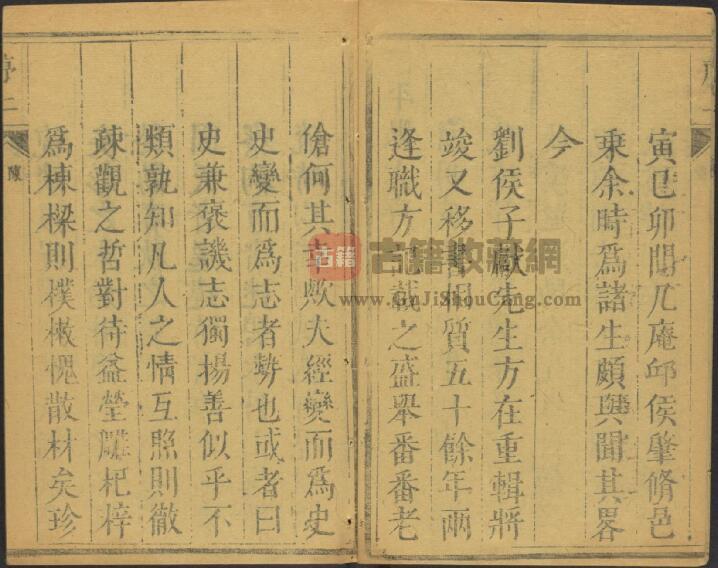 寅巳卯間几庵邱侯肇脩邑
乘余時爲諸生頗與聞其畧
今
劉侯子猷先生方在重輯將
竣又移書相質五十餘年兩
逢職方記載之盛舉番番老
傖何其幸歟夫經變而爲史
史變而爲志者勢也或者曰
史兼褒譏志獨揚善似乎不
類孰知凡人之情互照則徹
疎觀之哲對待益瑩雖杞梓
爲棟樑則樸樕愧散材矣珍
序二
陳
古籍
古籍收藏網
www.GuJiShouCang.com